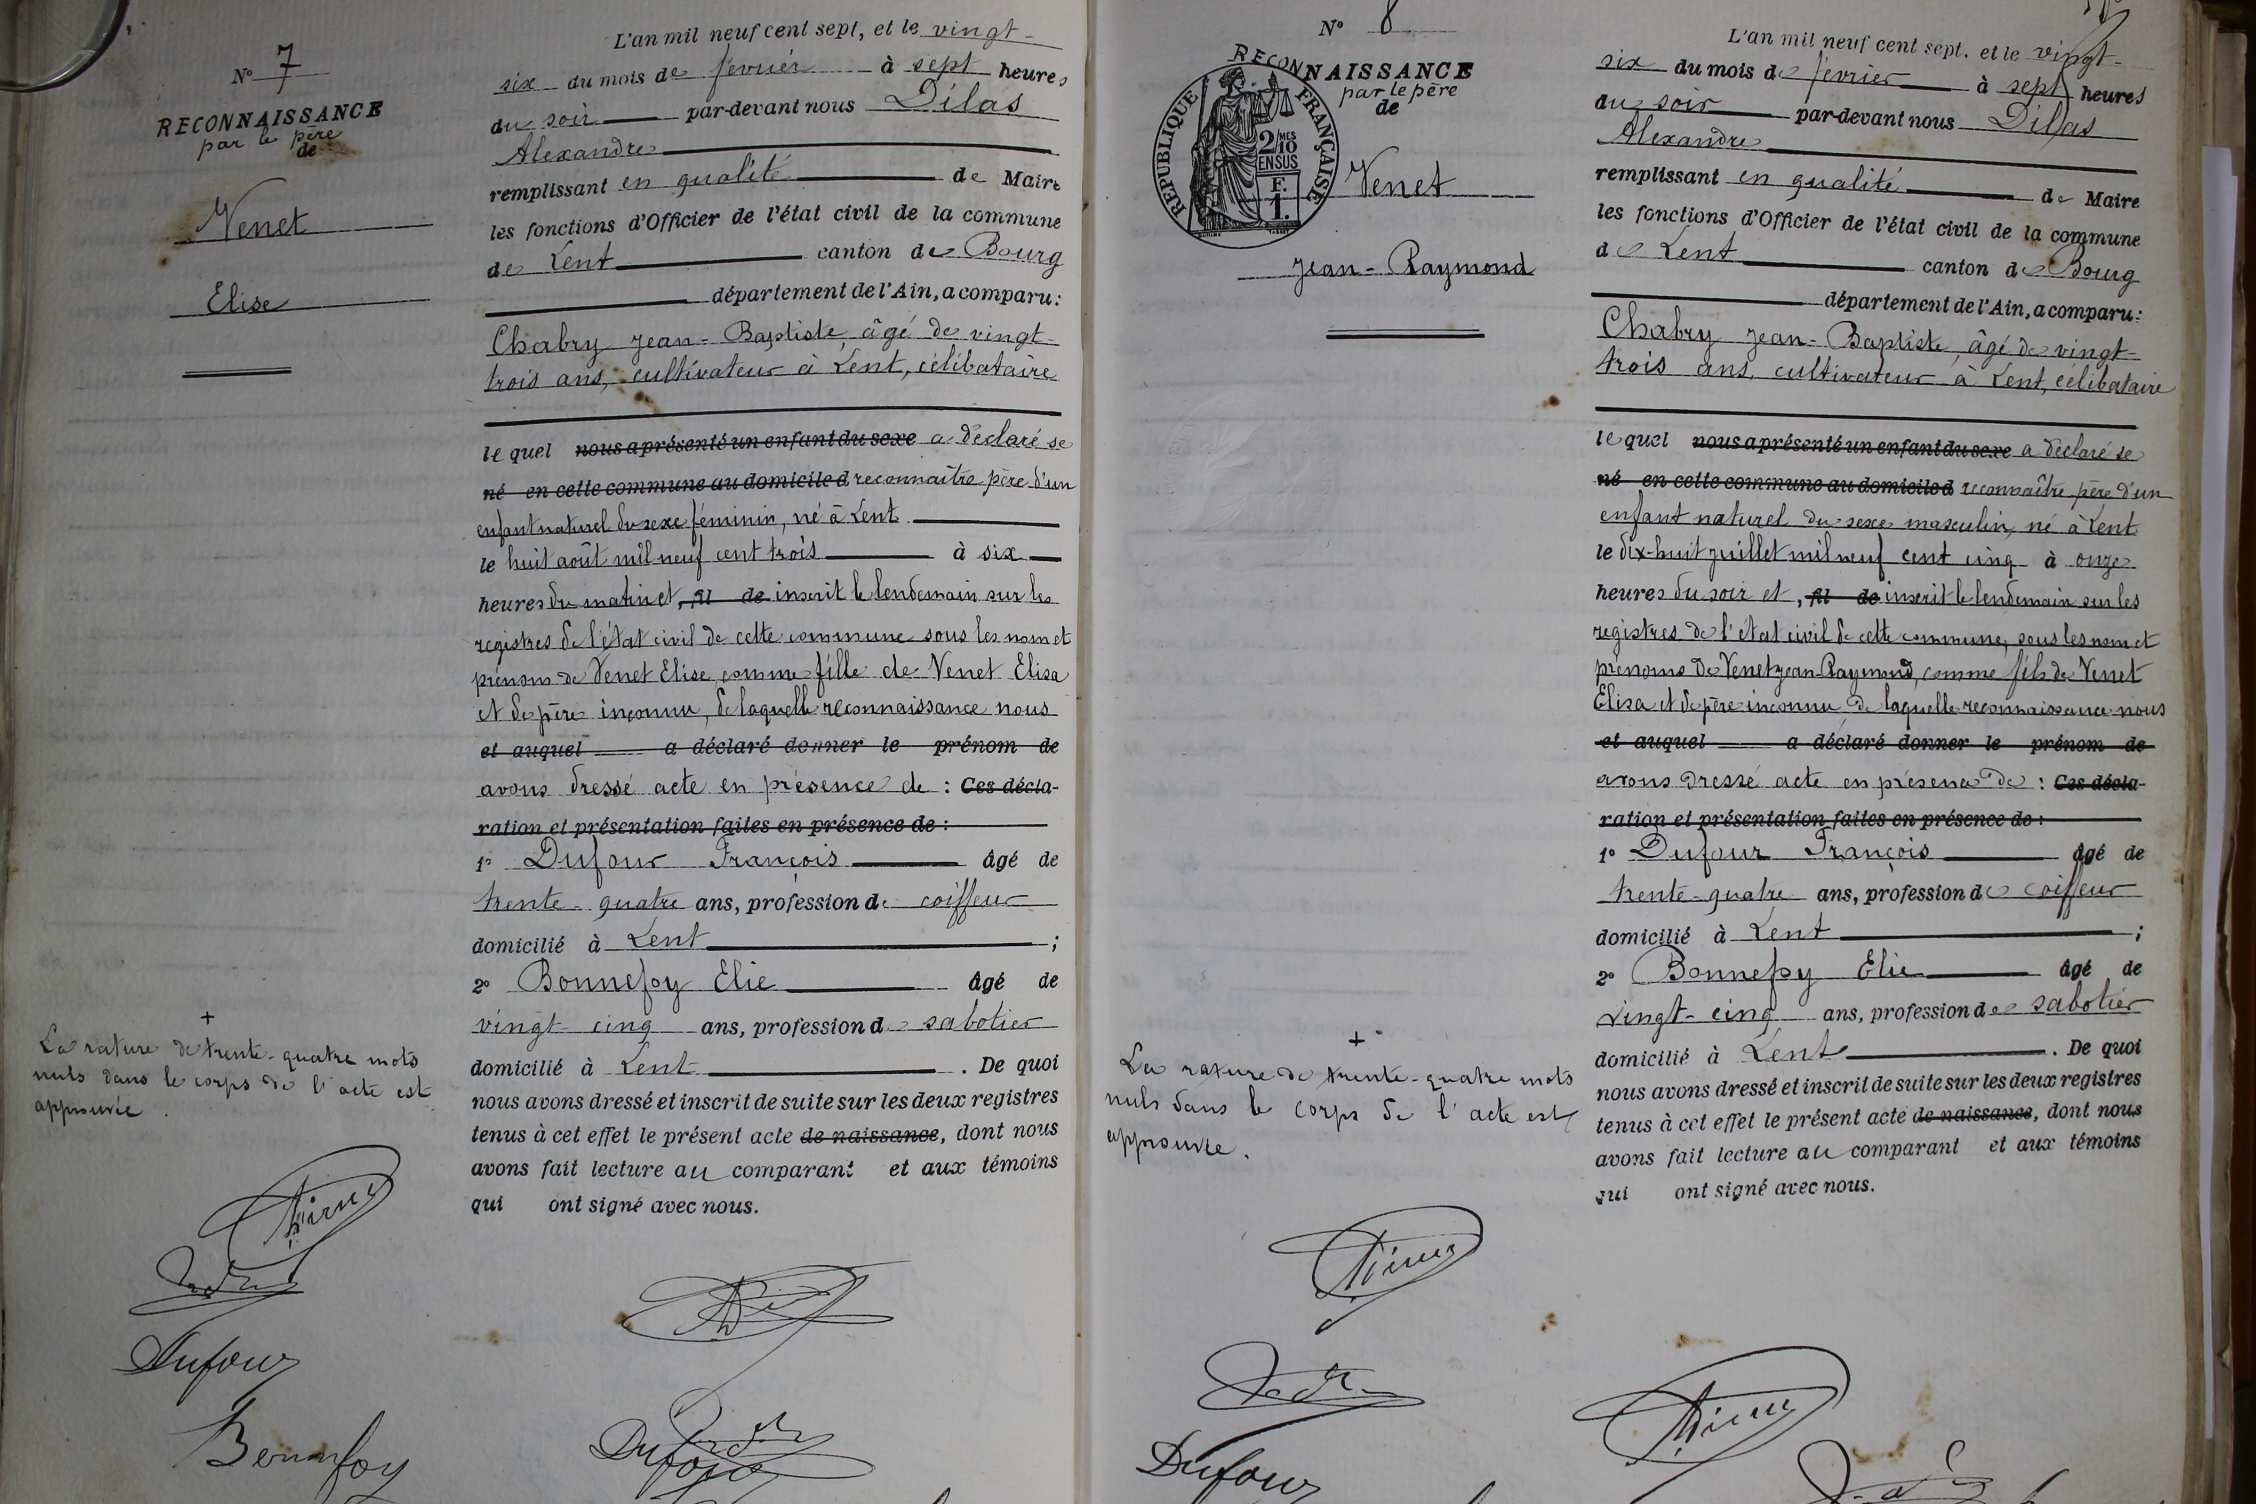 N° 7
RECONNAISSANCE
par le père
de
Venet
Elise
L'an mil neuf cent sept, et le vingt-
six du mois de février à sept heures
du soir par-devant nous Dilas
Alexandre
remplissant en qualité de Maire
les fonctions d'Officier de l'état civil de la commune
de Lent canton de Bourg
département de l'Ain, a comparu:
Chabry Jean-Baptiste, âgé de vingt-
trois ans, cultivateur à Lent, célibataire
le quel nous a présenté un enfant du sexe a déclaré se
né en cette commune au domicile d reconnaître père d'un
enfant naturel du sexe féminin, né à Lent
le huit août mil neuf cent trois à six
heures du matin et, fil de inscrit le lendemain sur les
registres de l'état civil de cette commune sous les nom et
prénom de Venet Elise, comme fille de Venet Elisa
et de père inconnu, de laquelle reconnaissance nous
et auquel a déclaré donner le prénom de
avons dressé acte en présence de : Ces décla-
ration et présentation faites en présence de :
1° Dufour François âgé de
trente-quatre ans, profession de coiffeur
domicilié à Lent ;
2° Bonnefoy Elie âgé de
vingt-cinq ans, profession de sabotier
domicilié à Lent . De quoi
nous avons dressé et inscrit de suite sur les deux registres
tenus à cet effet le présent acte de naissance, dont nous
avons fait lecture au comparant et aux témoins
qui ont signé avec nous.
+
La rature de trente-quatre mots
nuls dans le corps de l'acte est
approuvée.
Dufour
Bonnefoy
Dufour
N° 8
RECONNAISSANCE
par le père
de
RÉPUBLIQUE FRANÇAISE
2/10 MES
EN SUS
F.
1.
Venet
Jean-Raymond
L'an mil neuf cent sept. et le vingt-
six du mois de février à sept heures
du soir par-devant nous Dilas
Alexandre
remplissant en qualité de Maire
les fonctions d'Officier de l'état civil de la commune
de Lent canton de Bourg
département de l'Ain, a comparu:
Chabry Jean-Baptiste, âgé de vingt-
trois ans, cultivateur à Lent, célibataire
le quel nous a présenté un enfant du sexe a déclaré se
né en cette commune au domicile d reconnaître père d'un
enfant naturel du sexe masculin, né à Lent
le dix-huit juillet mil neuf cent cinq à onze
heures du soir et, fil de inscrit le lendemain sur les
registres de l'état civil de cette commune, sous les nom et
prénoms de Venet Jean-Raymond, comme fils de Venet
Elisa et de père inconnu de laquelle reconnaissance nous
et auquel a déclaré donner le prénom de
avons dressé acte en présence de : Ces décla-
ration et présentation faites en présence de :
1° Dufour François âgé de
trente-quatre ans, profession de coiffeur
domicilié à Lent ;
2° Bonnefoy Elie âgé de
vingt-cinq ans, profession de sabotier
domicilié à Lent . De quoi
nous avons dressé et inscrit de suite sur les deux registres
tenus à cet effet le présent acte de naissance, dont nous
avons fait lecture au comparant et aux témoins
qui ont signé avec nous.
+
La rature de trente-quatre mots
nuls dans le corps de l'acte est
approuvée.
Dufour